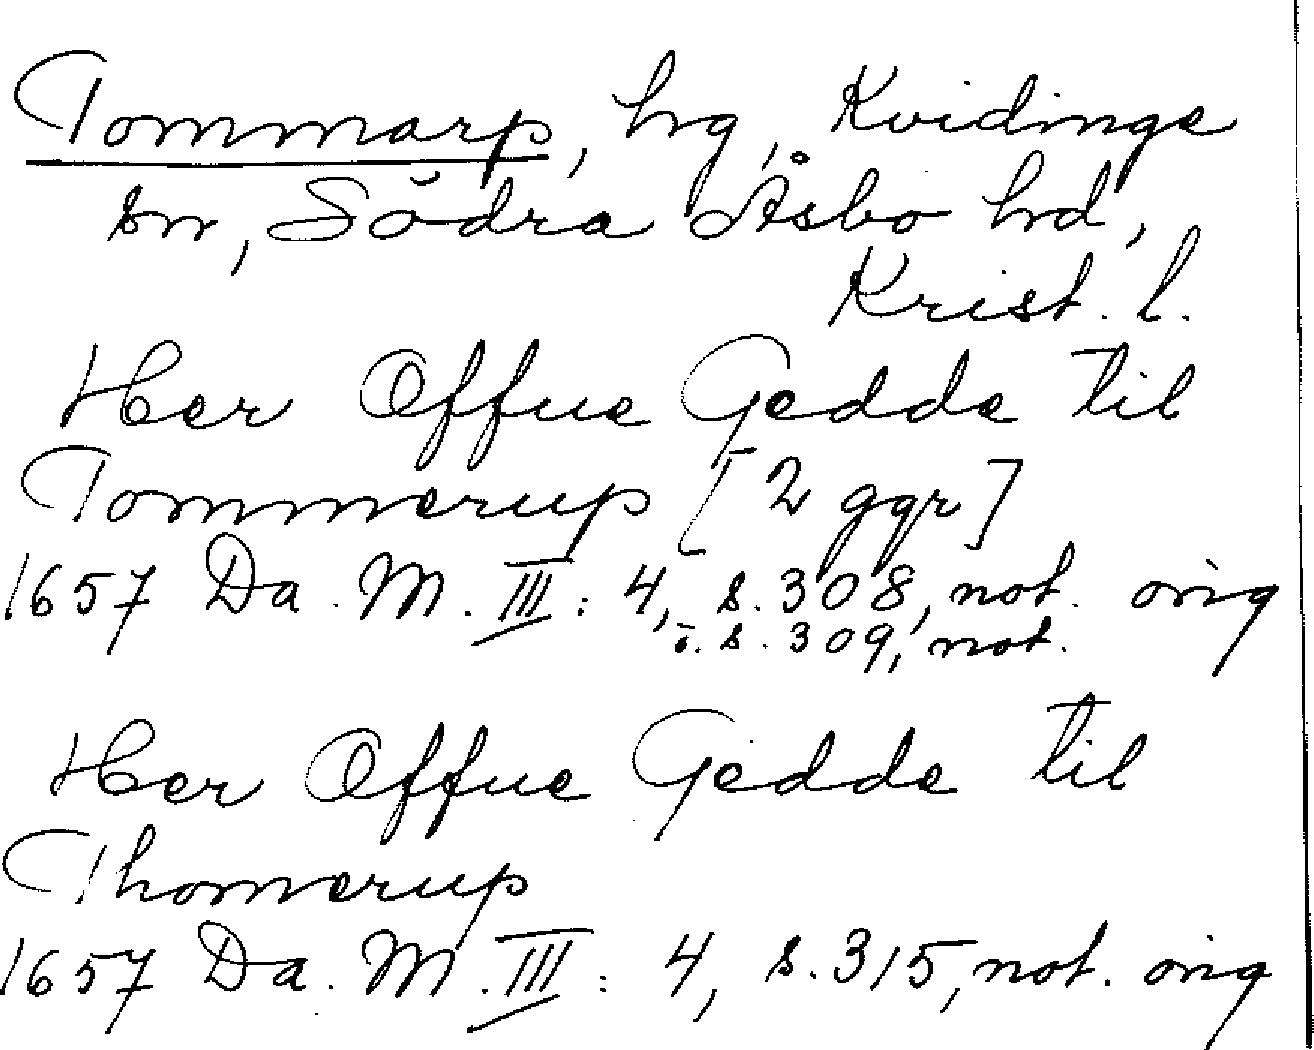 Tommarp, hg, Kvidinge
sn, Södra Åsbo hd,
Krist. l.
Her Offue Gedde til
Tommerup [2 ggr]
1657 Da. M. III: 4, s. 308, not. orig
o. s. 309, not.
Her Offue Gedde til
Thomerup
1657 Da. M. III: 4, s. 315, not. orig